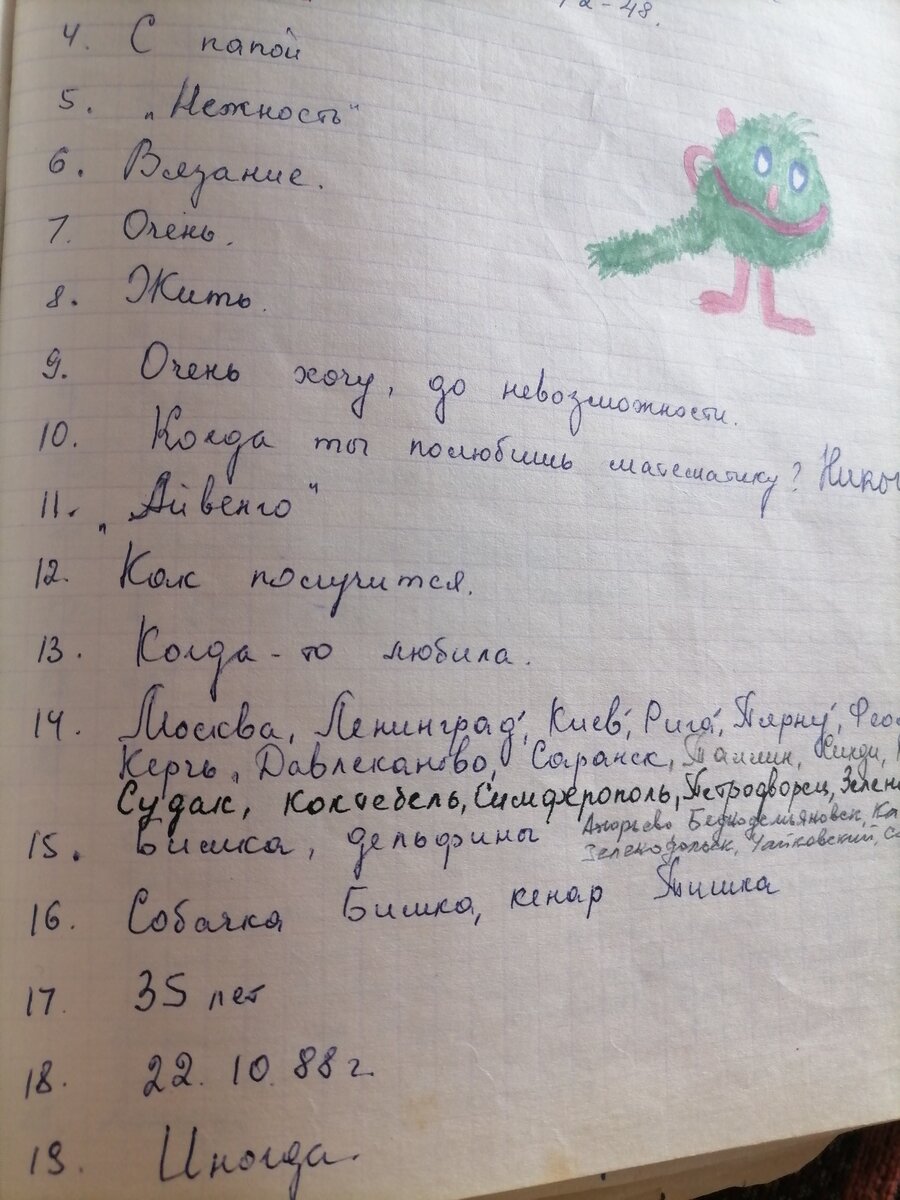 72-48.
4. С папой
5. „Нежность"
6. Вязание.
7. Очень.
8. Жить.
9. Очень хочу, до невозможности.
10. Когда ты полюбишь математику?
11. „Айвенго"
12. Как получится.
13. Когда-то любила.
14. Москва, Ленинград, Киев, Рига, Пярну,
Керчь, Давлеканово, Саранск, Таллин,
Судак, Коктебель, Симферополь, Петродворец,
Беднодемьяновск,
15. Бимка, дельфины
Зеленодольск, Чайковский,
16. Собачка Бимка, кенар Тишка
17. 35 лет
18. 22. 10. 88 г.
19. Иногда.